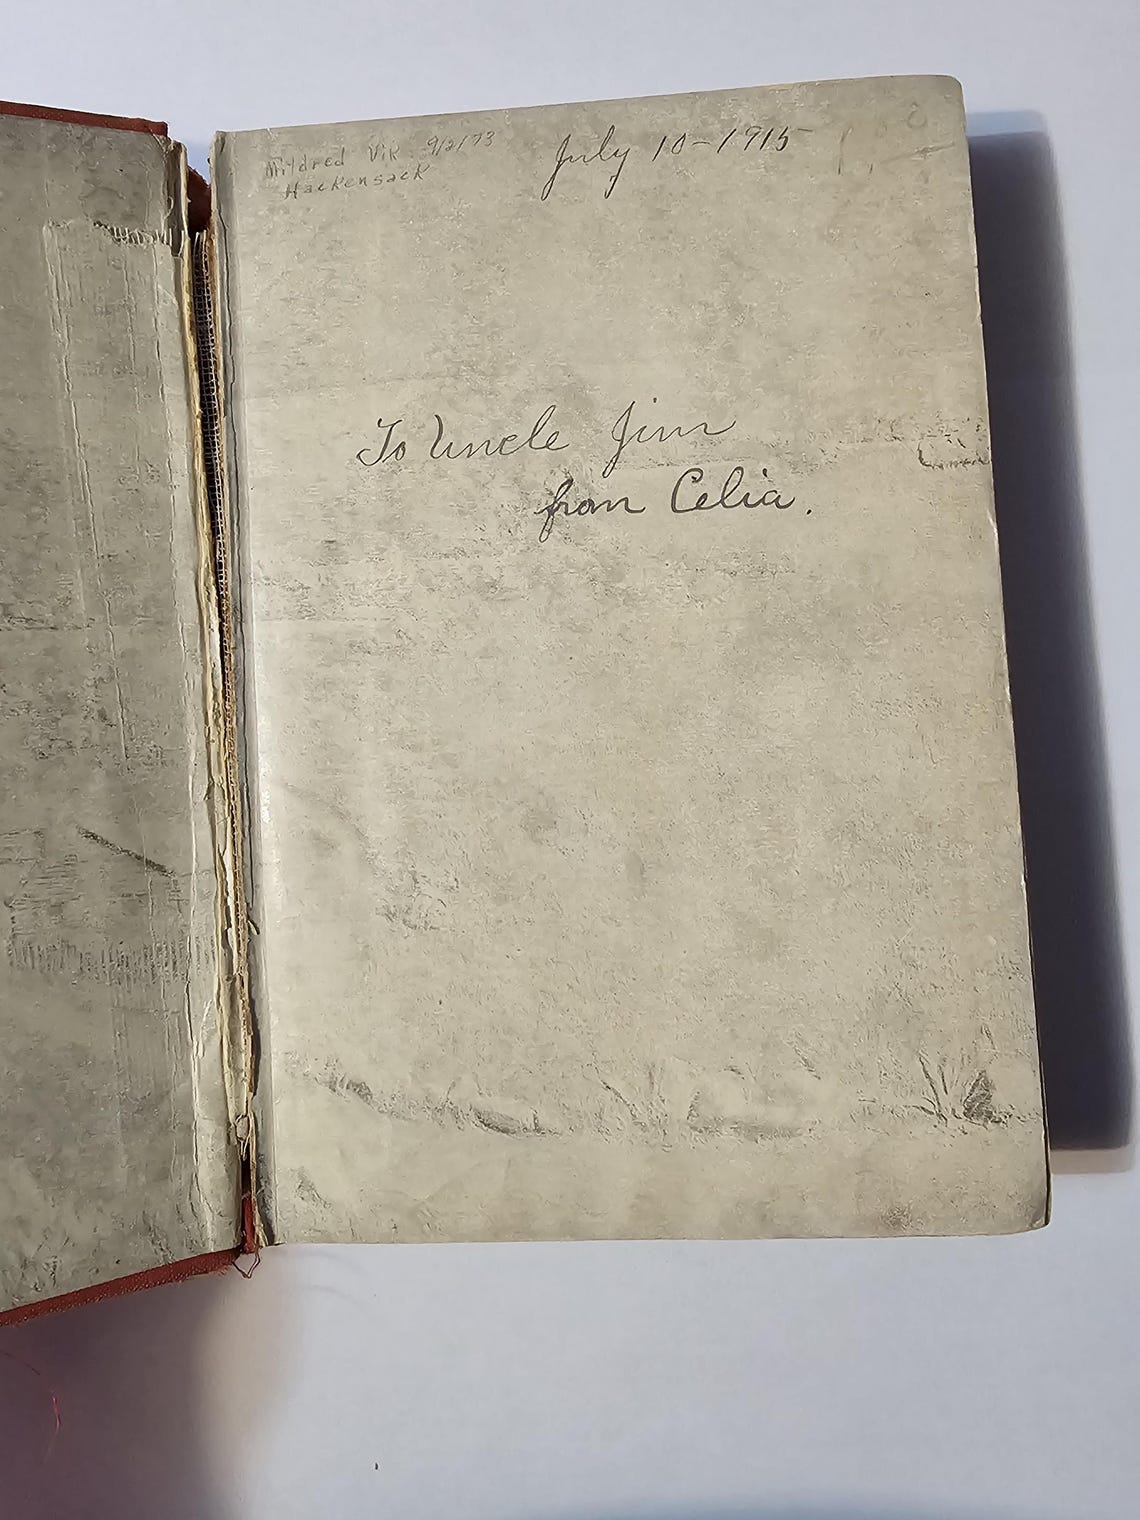 Mildred Vik 9/2/73
Hackensack
July 10-1915
To Uncle Jim
from Celia.